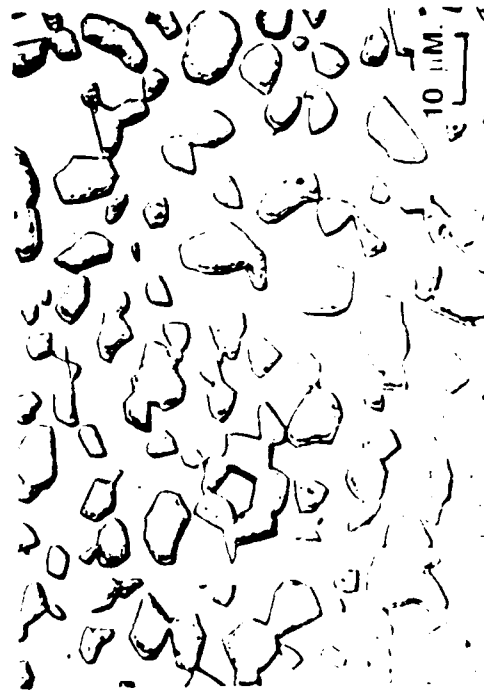 10 µM.